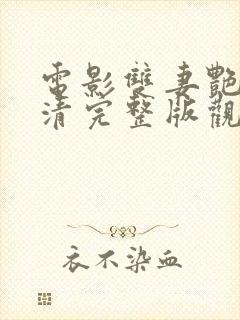 電影雙妻艷
清完整版觀
衣不染血